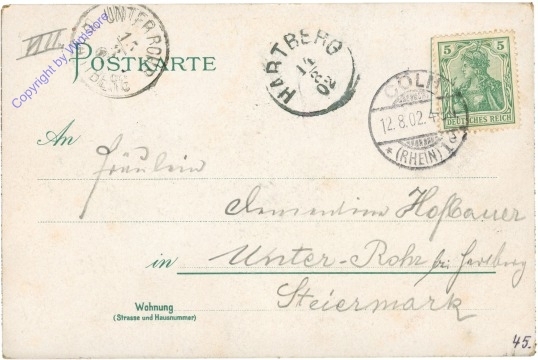 VIII.
UNTER ROHR
15
BERG
Copyright by Wigistore
POSTKARTE
HARTBERG
14
8
02
CÖLN
12.8.02.4
* (RHEIN) 1
5 5
DEUTSCHES REICH
An
Fräulein
Clementine Hofbauer
in Unter-Rohr bei Hartberg
Steiermark
Wohnung
(Strasse und Hausnummer)
45.